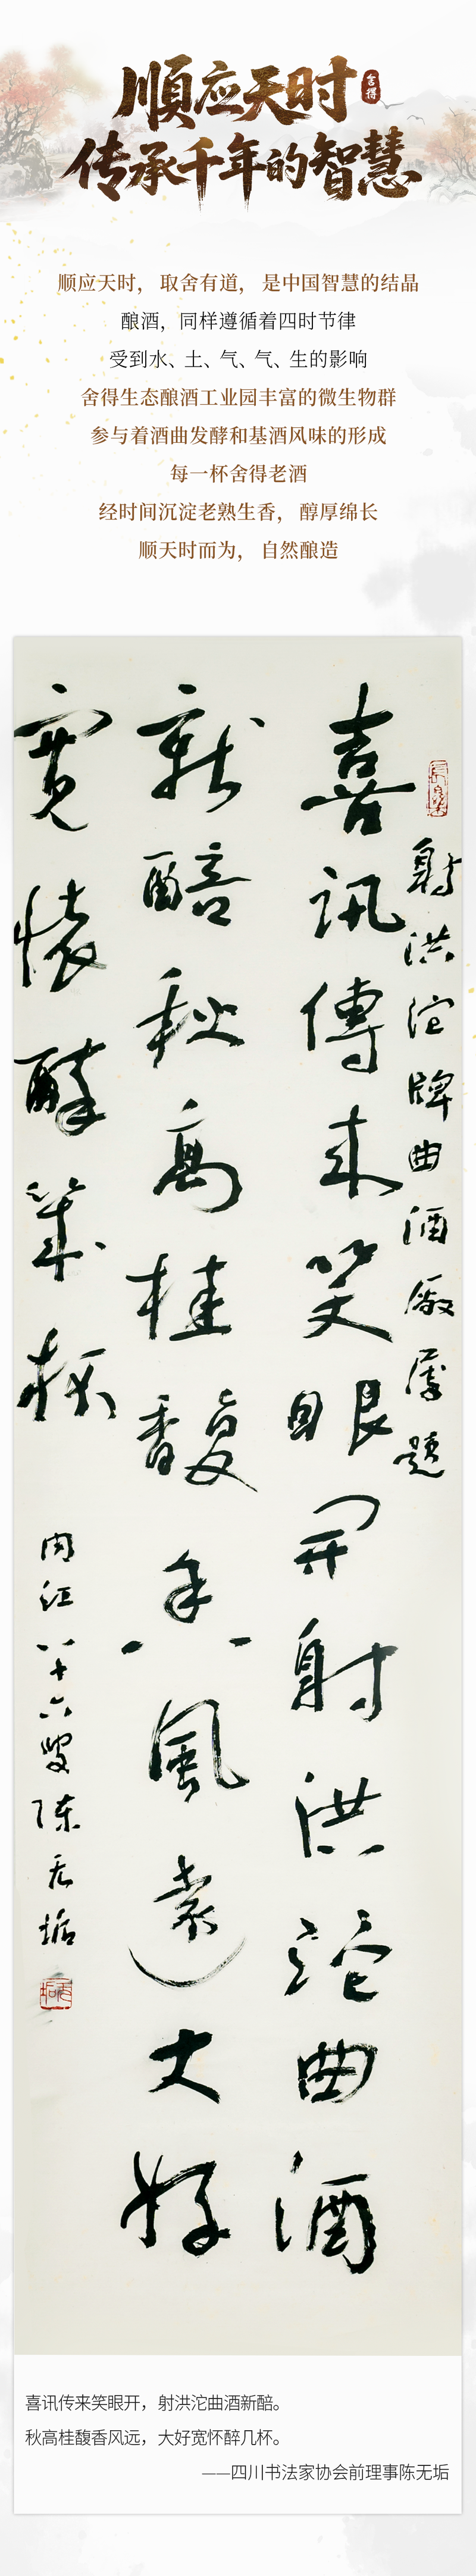 顺应天时
舍得
传承千年的智慧
顺应天时，取舍有道，是中国智慧的结晶
酿酒，同样遵循着四时节律
受到水、土、气、气、生的影响
舍得生态酿酒工业园丰富的微生物群
参与着酒曲发酵和基酒风味的形成
每一杯舍得老酒
经时间沉淀老熟生香，醇厚绵长
顺天时而为，自然酿造
射洪沱牌曲酒厰属题
喜訊傳来笑眼开射洪沱曲酒
新醅秋高桂馥香風遠大好
寬懷醉几杯
内江八十六叟陈无垢
喜讯传来笑眼开，射洪沱曲酒新醅。
秋高桂馥香风远，大好宽怀醉几杯。
——四川书法家协会前理事陈无垢